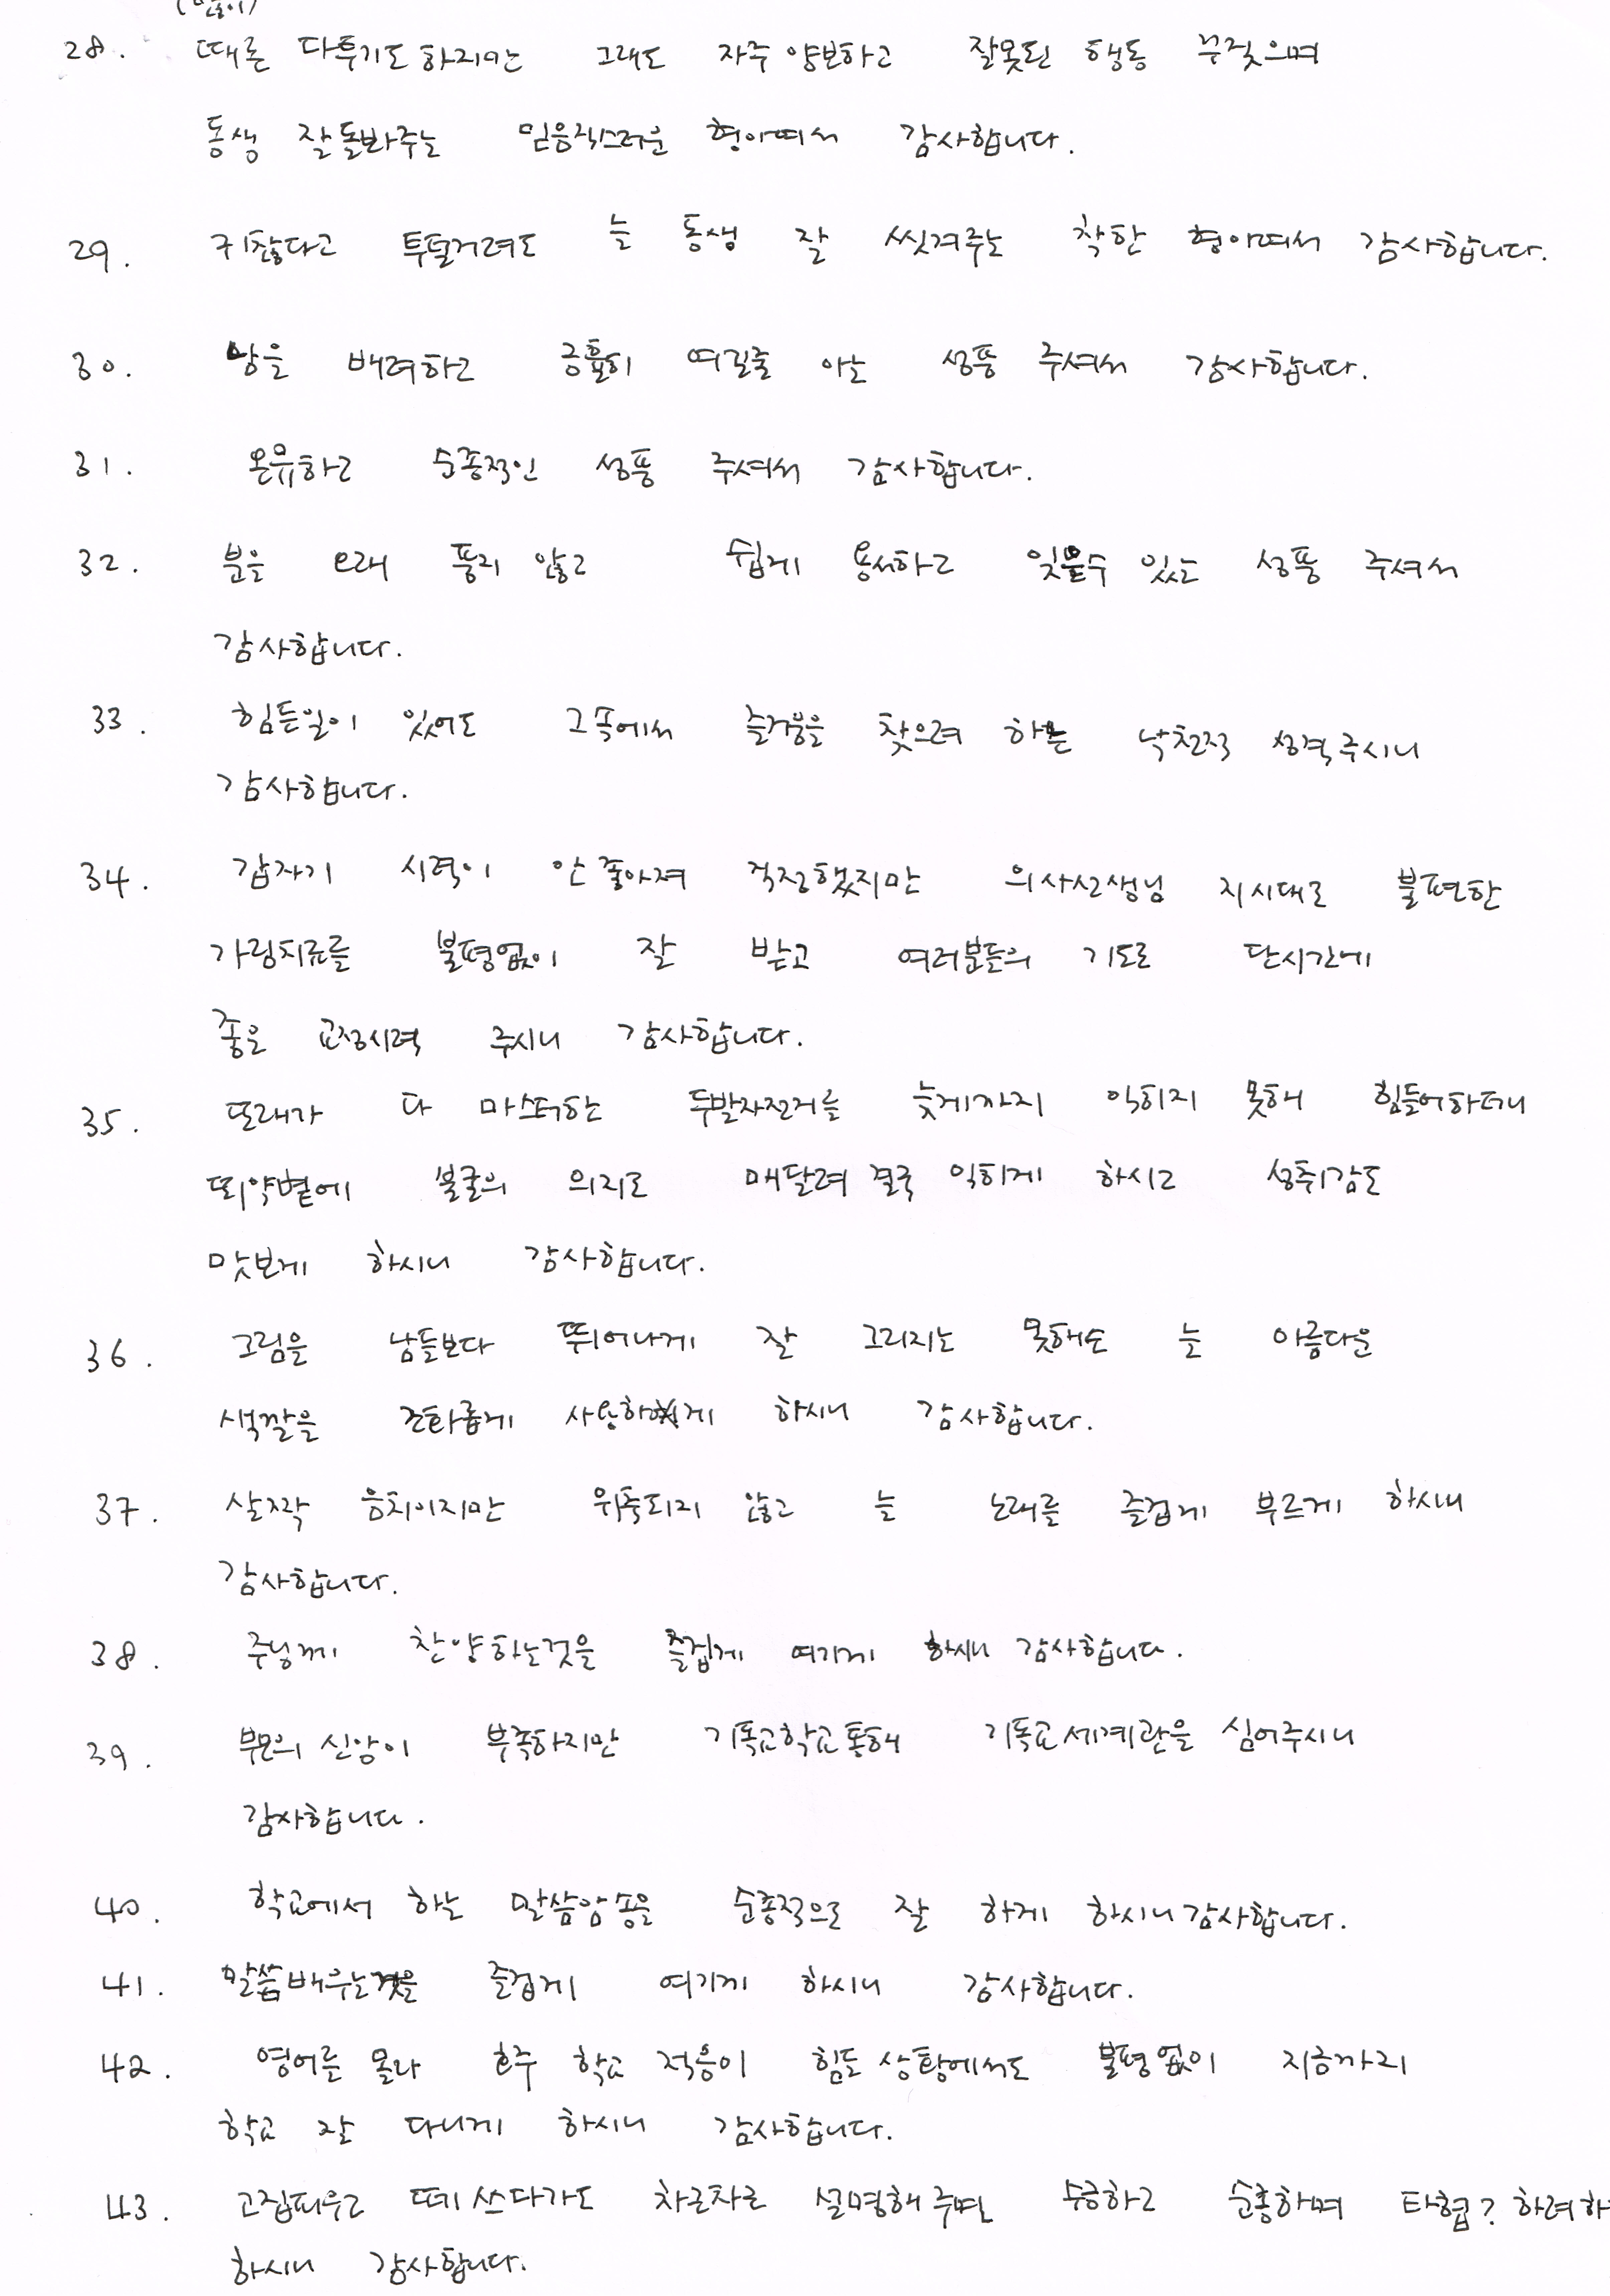 28. 때론 다투기도 하지만 그래도 자주 양보하고 잘못된 행동 꾸짖으며
동생 잘 돌봐주는 믿음직스러운 형아여서 감사합니다.
29. 귀찮다고 투덜거려도 늘 동생 잘 씻겨주는 착한 형아여서 감사합니다.
30. 남을 배려하고 긍휼히 여길줄 아는 성품 주셔서 감사합니다.
31. 온유하고 순종적인 성품 주셔서 감사합니다.
32. 분을 오래 품지 않고 쉽게 용서하고 잊을수 있는 성품 주셔서
감사합니다.
33. 힘든일이 있어도 그속에서 즐거움을 찾으려 하는 낙천적 성격주시니
감사합니다.
34. 갑자기 시력이 안 좋아져 걱정했지만 의사선생님 지시대로 불편한
가림치료를 불평없이 잘 받고 여러분들의 기도로 단시간에
좋은 교정시력 주시니 감사합니다.
35. 또래가 다 마스터한 두발자전거를 늦게까지 익히지 못해 힘들어하더니
뙤약볕에 불굴의 의지로 매달려 결국 익히게 하시고 성취감도
맛보게 하시니 감사합니다.
36. 그림을 남들보다 뛰어나게 잘 그리지는 못해도 늘 아름다운
색깔을 조화롭게 사용하게 하시니 감사합니다.
37. 살짝 음치이지만 위축되지 않고 늘 노래를 즐겁게 부르게 하시니
감사합니다.
38. 주님께 찬양하는것을 즐겁게 여기게 하시니 감사합니다.
39. 부모의 신앙이 부족하지만 기독교학교통해 기독교세계관을 심어주시니
감사합니다.
40. 학교에서 하는 말씀암송을 순종적으로 잘 하게 하시니 감사합니다.
41. 말씀배우는것을 즐겁게 여기게 하시니 감사합니다.
42. 영어를 몰라 호주 학교 적응이 힘든 상황에서도 불평없이 지금까지
학교 잘 다니게 하시니 감사합니다.
43. 고집피우고 떼쓰다가도 차근차근 설명해주면 수긍하고 순종하며 타협? 하려하
하시니 감사합니다.